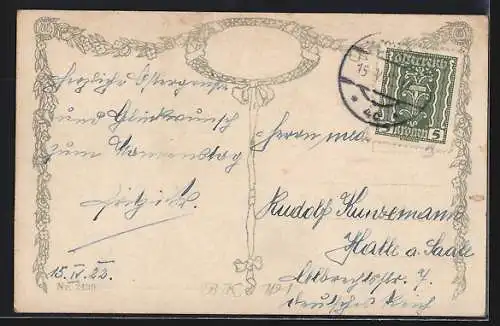 Herzliche Ostergrüsse
und Glückwunsch
zum Namenstag
15. IV. 22.
Herrn med
Rudolf Kunzemann
Halle a. Saale
Albrechtstr. 7.
Deutsches Reich
Österreich
15
5 Kronen 5